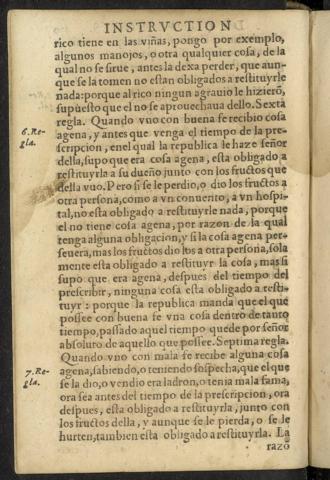 INSTRVCTION
rico tiene en las viñas, pongo por exemplo,
algunos manojos, o otra qualquier cosa, de la
qual no se sirue, antes la dexa perder, que aun-
que se la tomen no estan obligados a restituyrle
nada: porque al rico ningun agrauio le hizierõ,
supuesto que el no se aprouechaua dello. Sexta
regla. Quando vno con buena fe recibio cosa
agena, y antes que venga el tiempo de la pre-
scripcion, en el qual la republica le haze señor
della, supo que era cosa agena, esta obligado a
restituyrla a su dueño junto con los fructos que
della vuo. Pero si se le perdio, o dio los fructos a
otra persona, como a vn conuento, a vn hospi-
tal, no esta obligado a restituyrle nada, porque
el no tiene cosa agena, por razon de la qual
tenga alguna obligacion, y si la cosa agena per-
seuera, mas los fructos dio los a otra persona, sola
mente esta obligado a restituyr la cosa, mas si
supo que era agena, despues del tiempo del
prescribir, ninguna cosa esta obligado a resti-
tuyr: porque la republica manda que el que
possee con buena fe vna cosa dentro de tanto
tiempo, passado aquel tiempo quede por señor
absoluto de aquello que possee. Septima regla.
Quando vno con mala fe recibe alguna cosa
agena, sabiendo, o teniendo sospecha, que el que
se la dio, o vendio era ladron, o tenia mala fama,
ora sea antes del tiempo de la prescripcion, ora
despues, esta obligado a restituyrla, junto con
los fructos della, y aunque se le pierda, o se le
hurten, tambien esta obligado a restituyrla. La
razõ
6. Re-
gla.
7. Re-
gla.